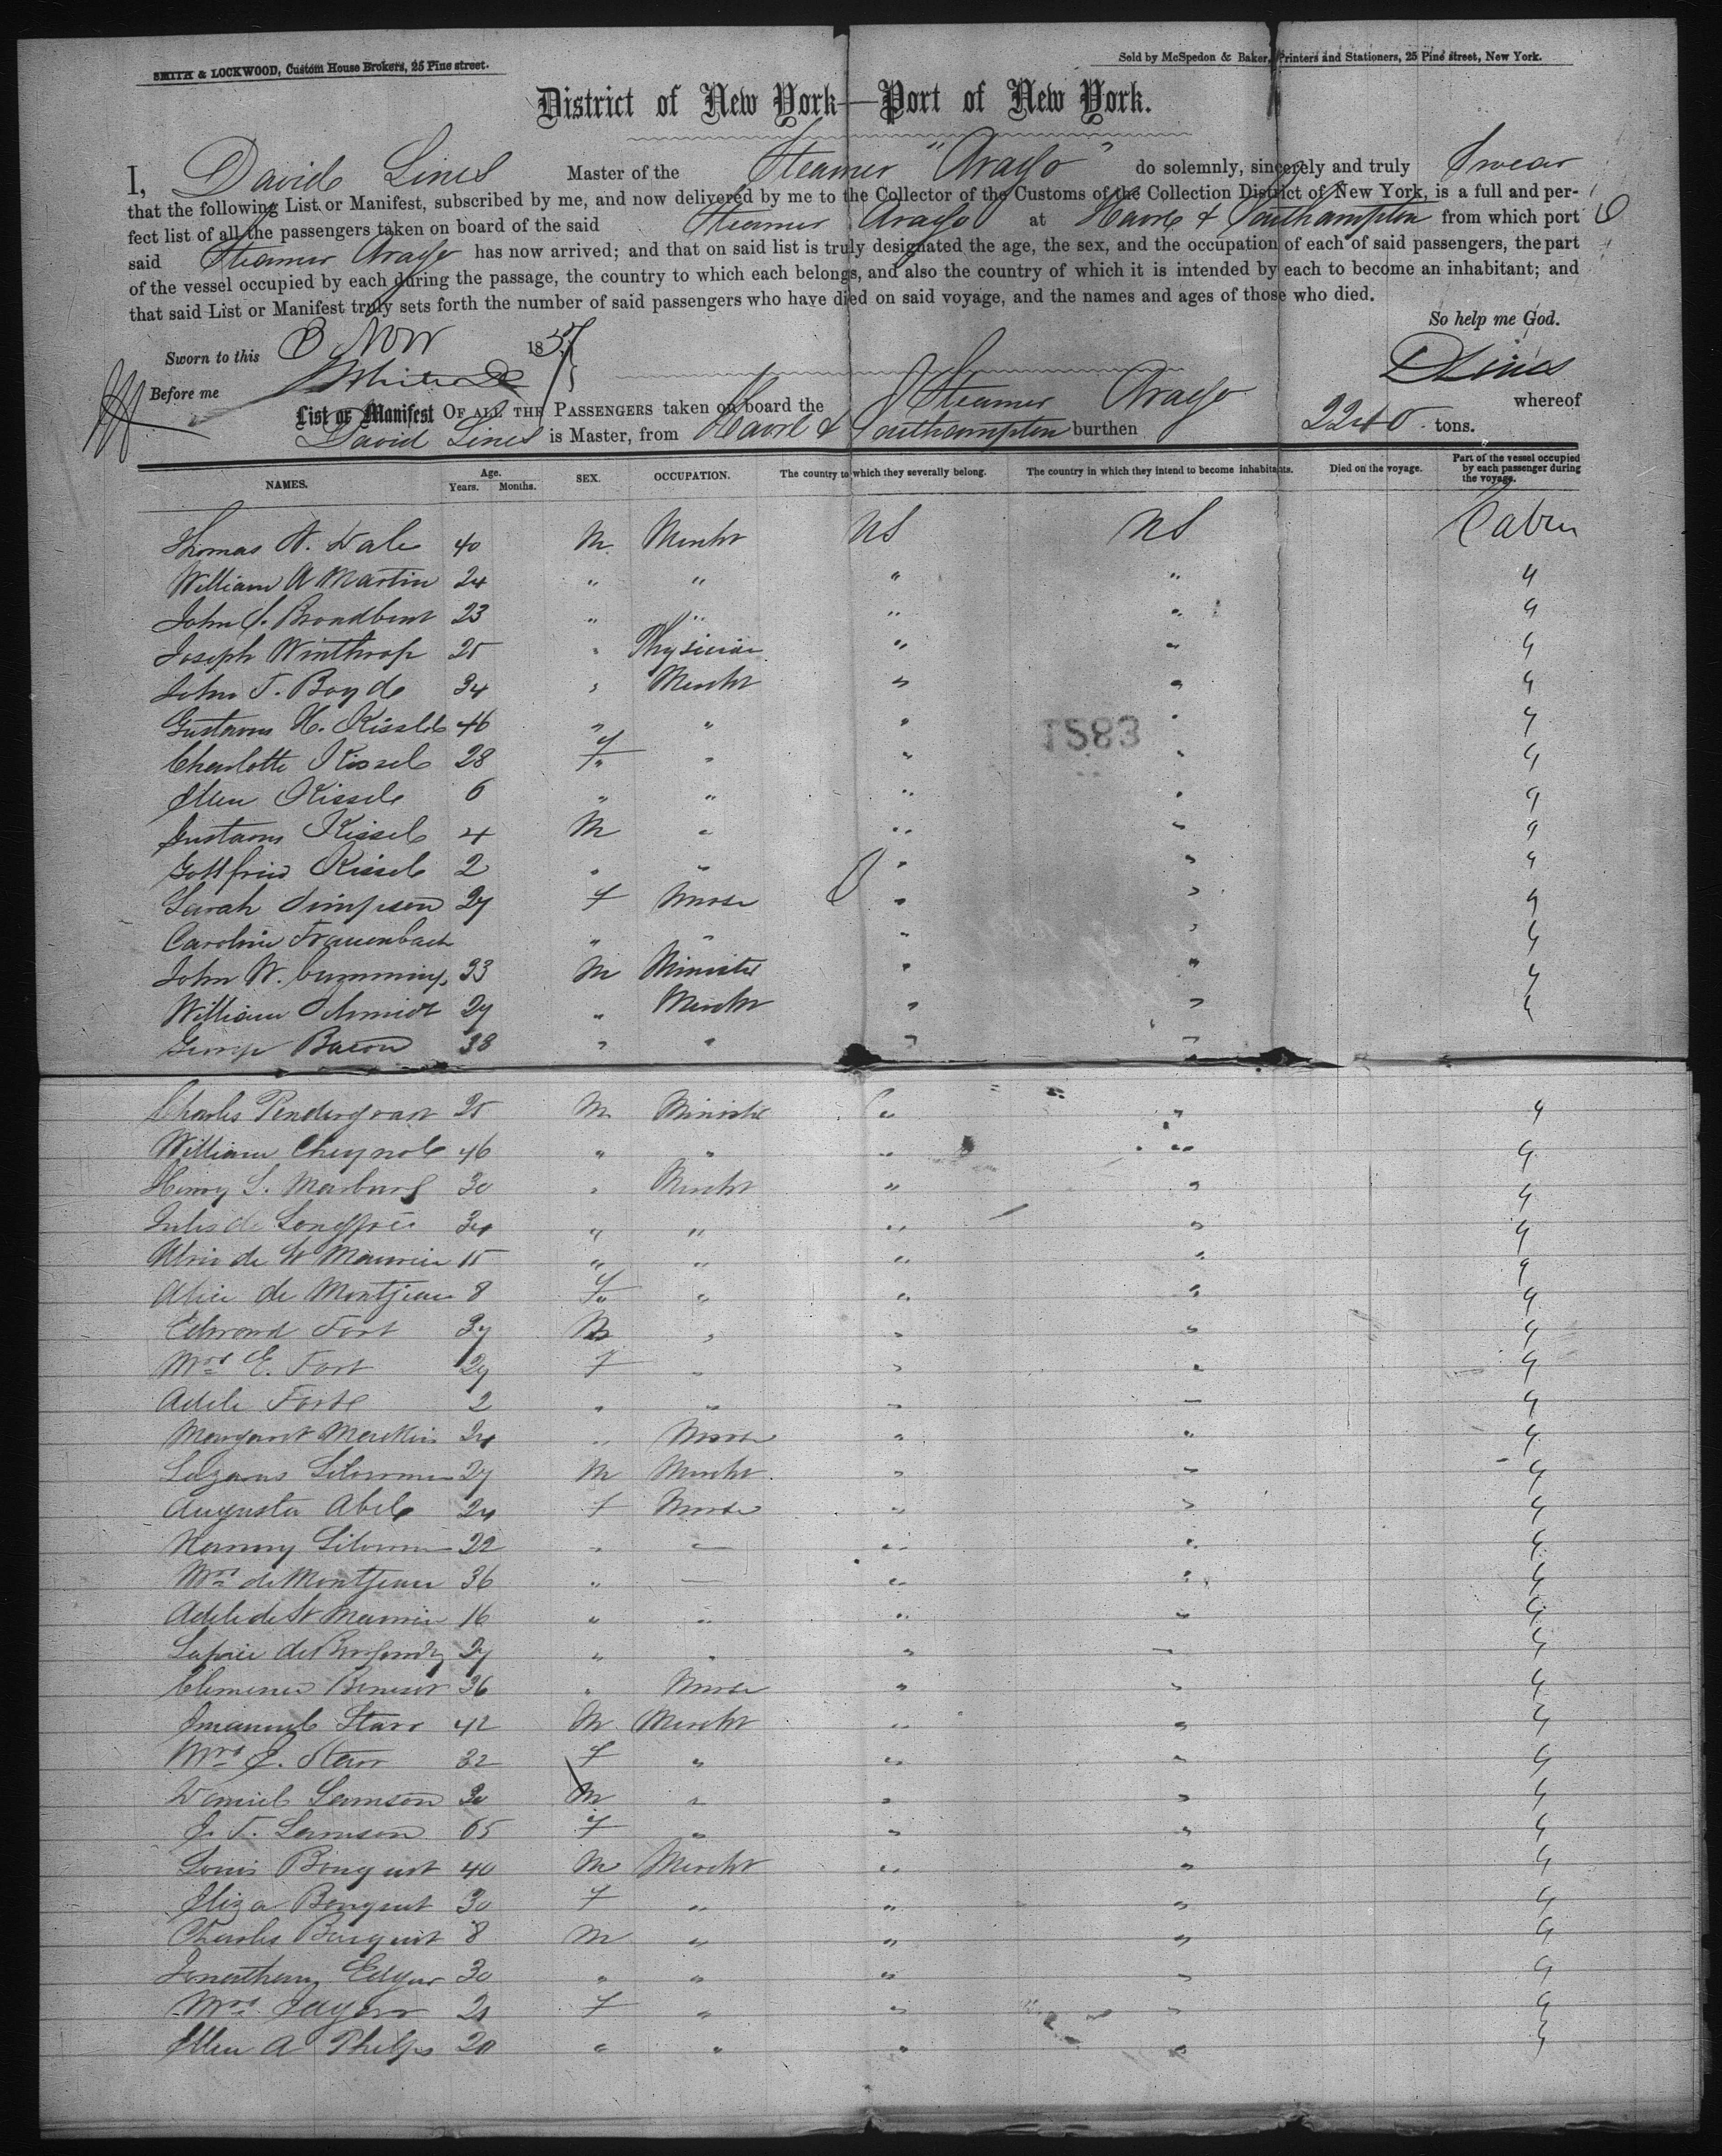 SMITH & LOCKWOOD, Custom House Brokers, 25 Pine street.
Sold by McSpedon & Baker, Printers and Stationers, 25 Pine street, New York.
District of New York—Port of New York.
I, David Lines Master of the Steamer "Arago" do solemnly, sincerely and truly Swear
that the following List or Manifest, subscribed by me, and now delivered by me to the Collector of the Customs of the Collection District of New York, is a full and per-
fect list of all the passengers taken on board of the said Steamer Arago at Havre & Southampton from which port
said Steamer Arago has now arrived; and that on said list is truly designated the age, the sex, and the occupation of each of said passengers, the part
of the vessel occupied by each during the passage, the country to which each belongs, and also the country of which it is intended by each to become an inhabitant; and
that said List or Manifest truly sets forth the number of said passengers who have died on said voyage, and the names and ages of those who died.
So help me God.
Sworn to this 3 Nov 1857
Before me
D Lines
List or Manifest OF ALL THE PASSENGERS taken on board the Steamer Arago whereof
David Lines is Master, from Havre & Southampton burthen 2240 tons.
NAMES. Age. Years. Months. SEX. OCCUPATION. The country to which they severally belong. The country in which they intend to become inhabitants. Died on the voyage. Part of the vessel occupied by each passenger during the voyage.
Thomas N. Dale 40 M Mercht US US Cabin
William A Martin 24 " " " " "
John S. Broadbent 23 " " " " "
Joseph Winthrop 25 " Physician " " "
John T. Boyd 34 " Mercht " " "
Gustavus H. Kissel 46 " " " " "
1583
Charlotte Kissel 28 F " " " "
Ellen Kissel 6 " " " " "
Gustavus Kissel 4 M " " " "
Gottfried Kissel 2 " " " " "
Sarah Simpson 27 F Nurse " " "
Caroline Frauenbach " " " " "
John W. Cummings 33 M Minister " " "
William Schmidt 27 " Mercht " " "
George Bacon 38 " " " "
Charles Pendergrast 25 M Minister " " "
William 46 " " " " "
Henry S. Marburg 30 " Mercht " " "
Jules de Longpré 34 " " " " "
de St Maurice 15 " " " " "
Alice de Montjeau 8 F " " " "
Edmond Fort 37 M " " " "
Mrs E. Fort 27 F " " " "
Adele Fort 2 " " " " "
Margaret 24 " Nurse " " "
Lazarus 27 M Mercht " " "
Augusta Abel 24 F Nurse " " "
22 " — " " "
Mrs de Montjeau 36 " — " " "
Adele de St Maurice 16 " " " " "
de 27 " " " — "
36 " Nurse " " "
Emanuel Starr 42 M Mercht " " "
Mrs E. Starr 32 F " " " "
Daniel Samson 30 M " " " "
J. T. Samson 65 F " " " "
Louis 40 M Mercht " " "
Eliza 30 F " " " "
Charles 8 M " " " "
Jonathan Edgar 30 " " " " "
Mrs Edgar 21 F " " " "
Ellen A Phelps 20 " " " " "